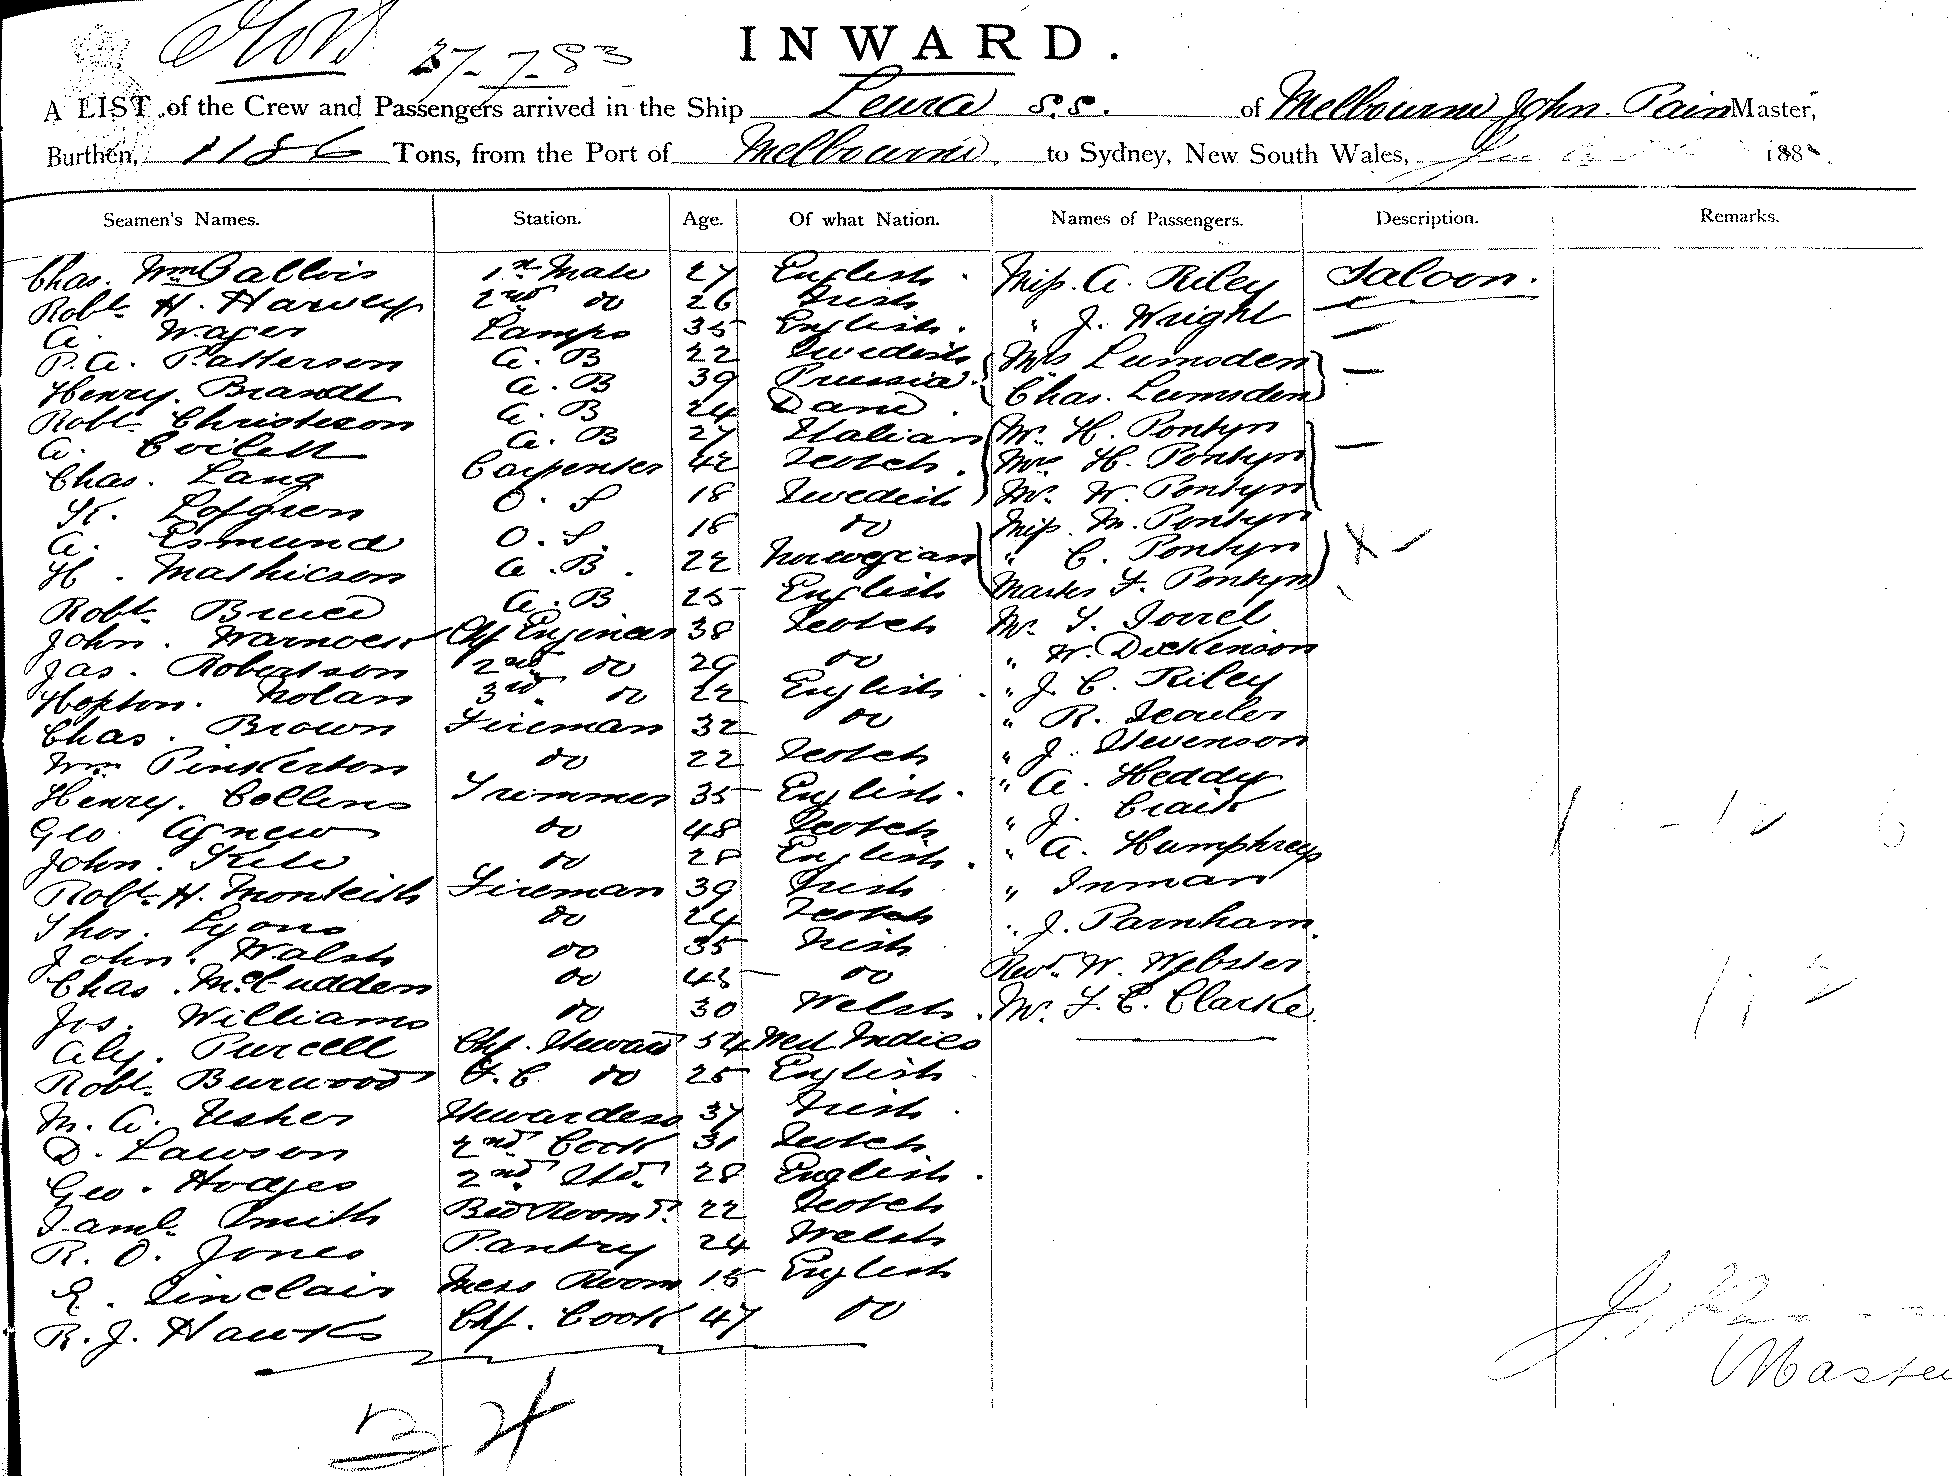 27-7-83
INWARD.
A LIST of the Crew and Passengers arrived in the Ship Leura s.s. of Melbourne John Pain Master,
Burthen, 1186 Tons, from the Port of Melbourne to Sydney, New South Wales, 188
Seamen's Names. Station. Age. Of what Nation. Names of Passengers. Description. Remarks.
Chas. Wm Gallois 1st Mate 27 English Miss A. Riley Saloon.
Robt H. Harvey 2nd do 26 Irish " J. Wright
A. Wager Lamps 35 English. Mrs Lumsden
P.A. Patterson A.B 22 Swedish Chas. Lumsden
Henry Brandt A.B 39 Prussia Mr. H. Pontyn
Robt Christeson A.B 24 Dane Mrs H. Pontyn
A. A.B 27 Italian Mr. W. Pontyn
Chas. Lang Carpenter 42 Scotch Miss M. Pontyn
K. Lofgren O.S 18 Swedish " C. Pontyn
A. Esmund O.S. 18 do Master F. Pontyn
H. Mathieson A.B. 22 Norwegian Mr.
Robt Bruce A.B 25 English " W. Dickinson
John. Chf Engineer 38 Scotch " J. C. Riley
Jas. Robertson 2nd do 29 do " R.
Hopton. Nolan 3rd do 22 English " J. Stevenson
Chas. Brown Fireman 32 do " A. Heddy
Wm Pinkerton do 22 Scotch " J. Craik
Henry. Collins Trimmer 35 English. " A. Humphreys
Geo. Agnew do 48 Scotch " Inman
John. do 28 English. " J. Parnham.
Robt H. Monteith Fireman 39 Irish Revd. W. Webster
Thos. Lyons do 24 Scotch Mr. F. C. Clarke
John. Walsh do 35 Irish
Chas. McCudden do 43 do
Jos. Williams do 30 Welsh
Aly. Purcell Chf. Steward 54 West Indies
Robt. Burwood F.C. do 25 English
M. A. Usher Stewardess 37 Irish
D. Lawson 2nd Cook 31 Scotch
Geo. Hodges 2nd Std. 28 English.
Saml. Smith Bed Room 22 Scotch
R. O. Jones Pantry 24 Welsh
E. Sinclair Mess Room 15 English
R. J. Hawks Chf. Cook 47 do
Master